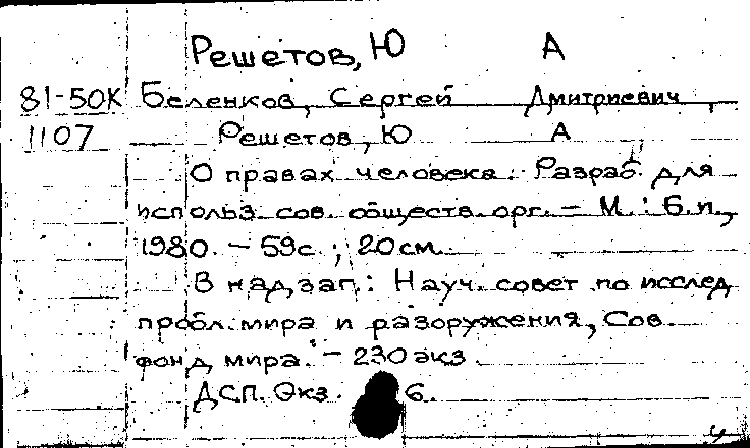 Решетов, Ю А
81-50К Беленков, Сергей Дмитриевич,
1107 Решетов, Ю А
О правах человека: Разраб. для
использ. сов. обществ. орг. – М.: Б.и.,
1980. – 59с.; 20см.
В надзаг.: Науч. совет по исслед
пробл. мира и разоружения, Сов.
фонд мира. – 230 экз
ДСП. Экз. 6.